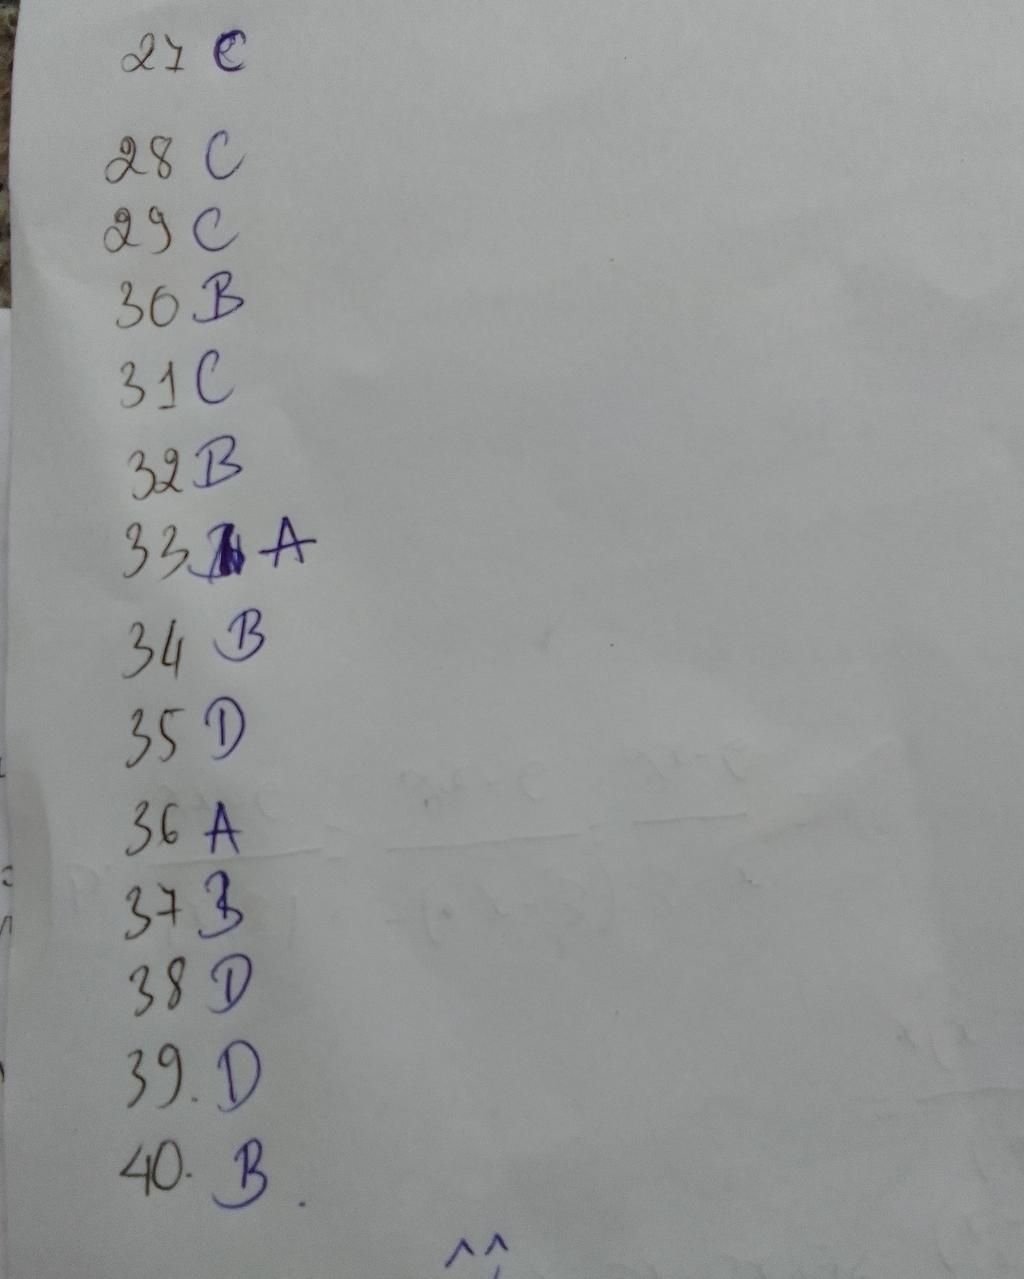 27 C
28 C
29 C
30 B
31 C
32 B
33 A
34 B
35 D
36 A
37 B
38 D
39. D
40. B.
^^